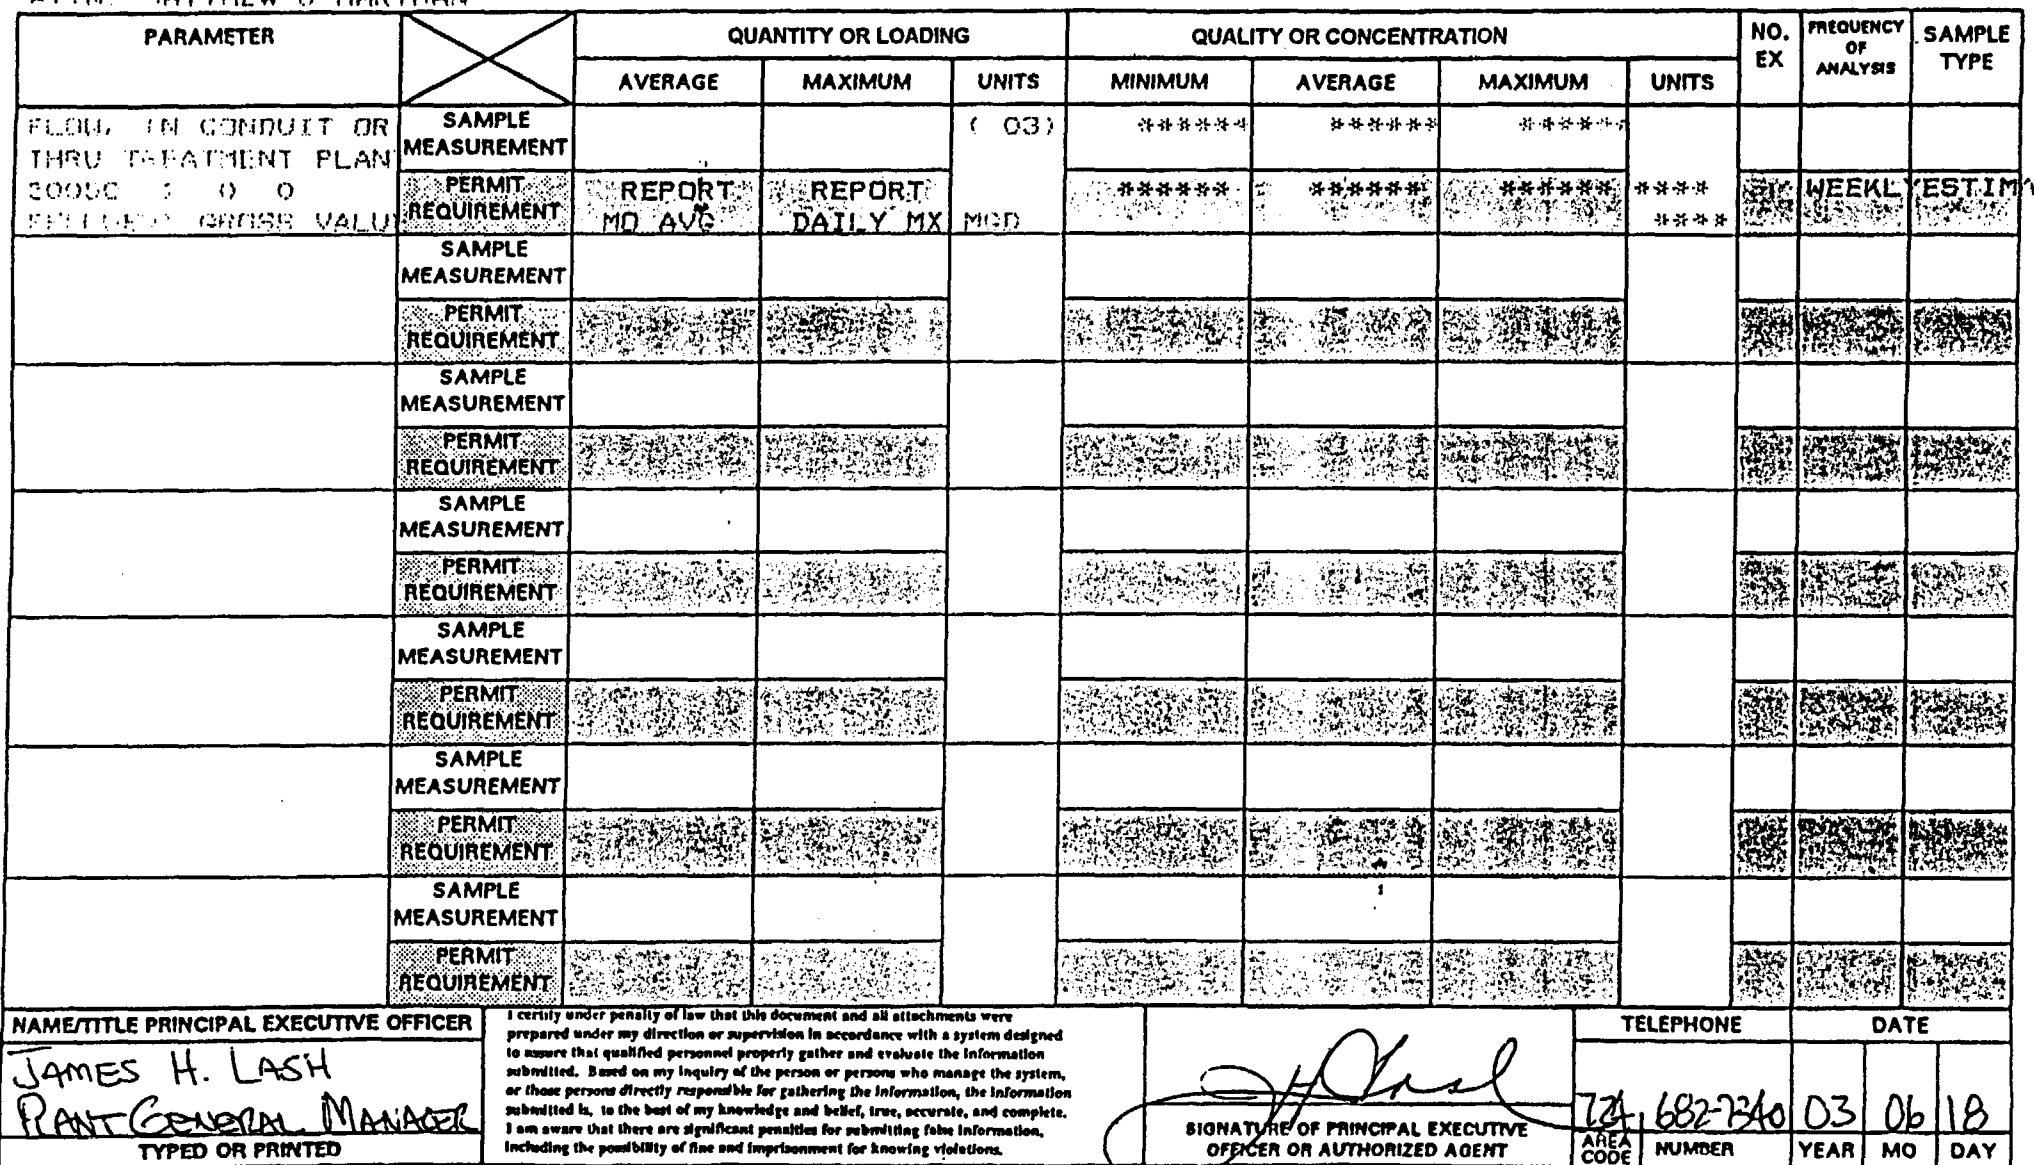 PARAMETER
QUANTITY OR LOADING
QUALITY OR CONCENTRATION
NO. EX
FREQUENCY OF ANALYSIS
SAMPLE TYPE
AVERAGE MAXIMUM UNITS MINIMUM AVERAGE MAXIMUM UNITS
FLOW, IN CONDUIT OR
THRU TREATMENT PLAN
GROSS VALU
SAMPLE MEASUREMENT
( 03) ****** ****** ******
PERMIT REQUIREMENT
REPORT MO AVG
REPORT DAILY MX
MGD
****** ****** ****** **** ****
WEEKLY ESTIMA
SAMPLE MEASUREMENT
PERMIT REQUIREMENT
SAMPLE MEASUREMENT
PERMIT REQUIREMENT
SAMPLE MEASUREMENT
PERMIT REQUIREMENT
SAMPLE MEASUREMENT
PERMIT REQUIREMENT
SAMPLE MEASUREMENT
PERMIT REQUIREMENT
SAMPLE MEASUREMENT
PERMIT REQUIREMENT
NAME/TITLE PRINCIPAL EXECUTIVE OFFICER
JAMES H. LASH
PLANT GENERAL MANAGER
TYPED OR PRINTED
I certify under penalty of law that this document and all attachments were
prepared under my direction or supervision in accordance with a system designed
to assure that qualified personnel properly gather and evaluate the information
submitted. Based on my inquiry of the person or persons who manage the system,
or those persons directly responsible for gathering the information, the information
submitted is, to the best of my knowledge and belief, true, accurate, and complete.
I am aware that there are significant penalties for submitting false information,
including the possibility of fine and imprisonment for knowing violations.
SIGNATURE OF PRINCIPAL EXECUTIVE
OFFICER OR AUTHORIZED AGENT
TELEPHONE
724 682-7340
AREA CODE NUMBER
DATE
03 06 18
YEAR MO DAY